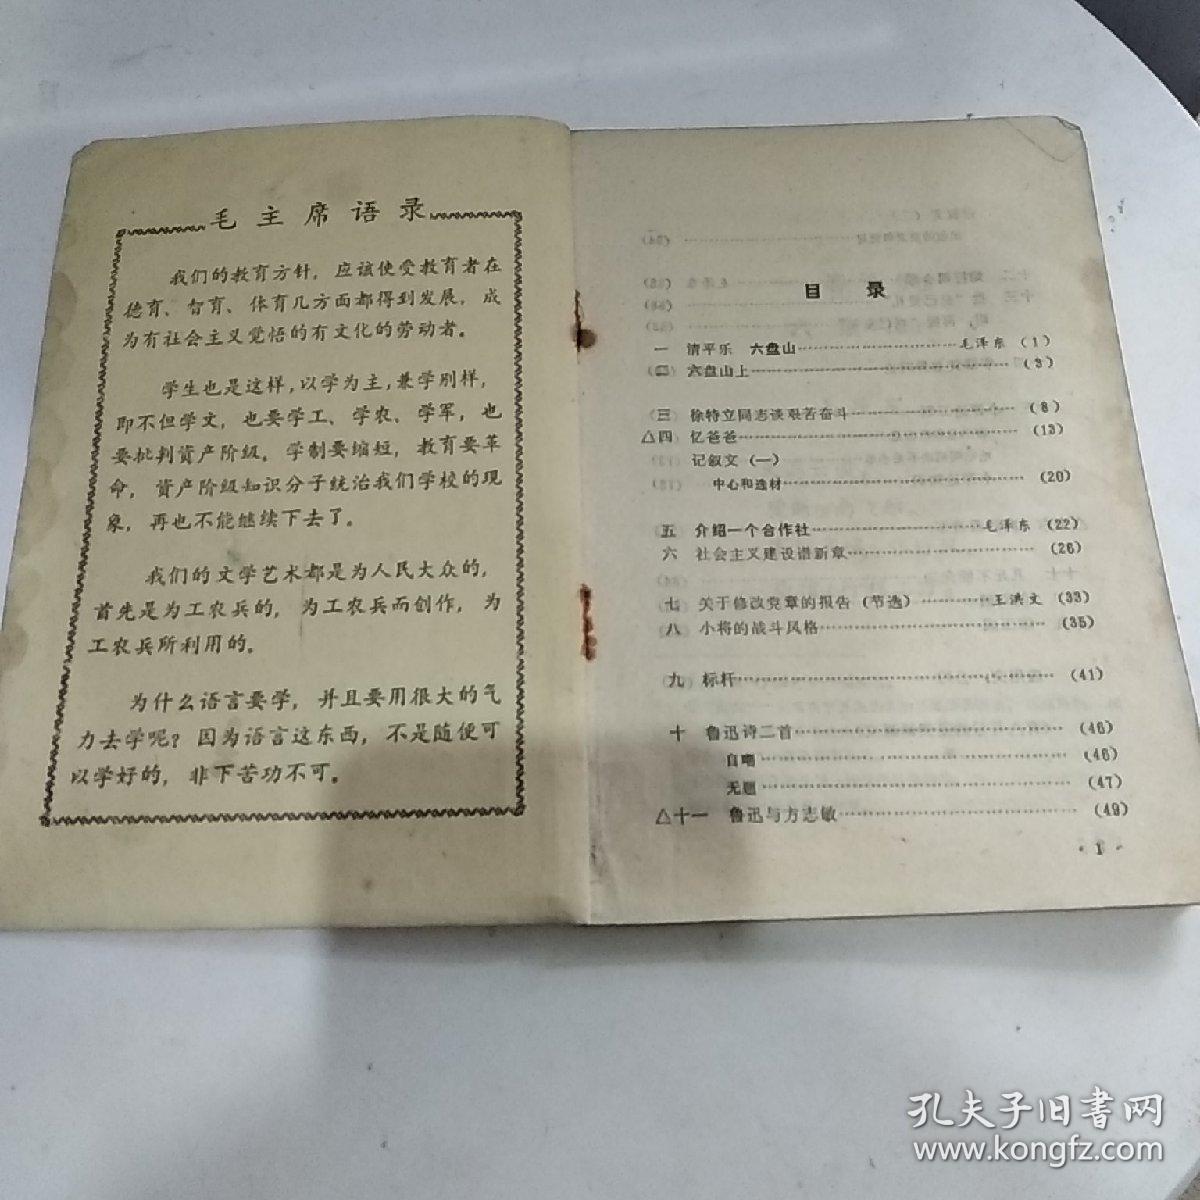 毛主席语录
我们的教育方针，应该使受教育者在
德育、智育、体育几方面都得到发展，成
为有社会主义觉悟的有文化的劳动者。
学生也是这样，以学为主，兼学别样，
即不但学文，也要学工、学农、学军，也
要批判资产阶级。学制要缩短，教育要革
命，资产阶级知识分子统治我们学校的现
象，再也不能继续下去了。
我们的文学艺术都是为人民大众的，
首先是为工农兵的，为工农兵而创作，为
工农兵所利用的。
为什么语言要学，并且要用很大的气
力去学呢？因为语言这东西，不是随便可
以学好的，非下苦功不可。
目录
一 清平乐 六盘山……毛泽东（1）
二 六盘山上……（3）
三 徐特立同志谈艰苦奋斗……（8）
△四 忆爸爸……（13）
记叙文（一）
中心和选材……（20）
五 介绍一个合作社……毛泽东（22）
六 社会主义建设谱新章……（26）
七 关于修改党章的报告（节选）……王洪文（33）
八 小将的战斗风格……（35）
九 标杆……（41）
十 鲁迅诗二首……（46）
自嘲……（46）
无题……（47）
△十一 鲁迅与方志敏……（49）
·1·
孔夫子旧书网
www.kongfz.com